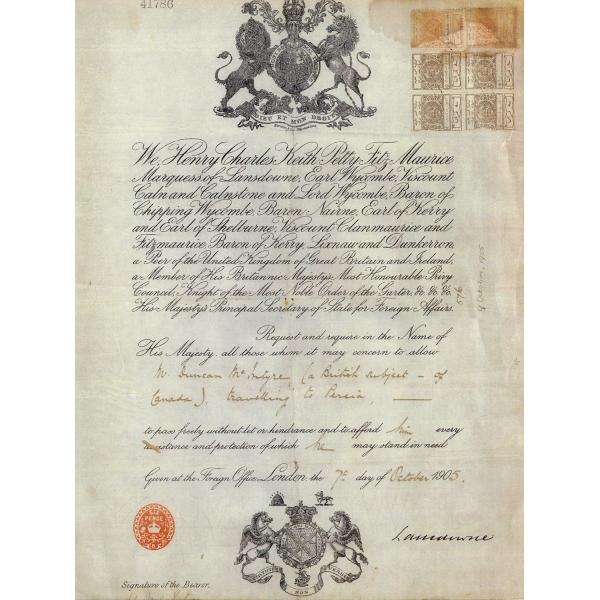 41786
DIEU ET MON DROIT
We, Henry Charles Keith Petty Fitz Maurice
Marquess of Lansdowne, Earl Wycombe, Viscount
Caln and Calnstone and Lord Wycombe, Baron of
Chipping Wycombe, Baron Nairne, Earl of Kerry
and Earl of Shelburne, Viscount Clanmaurice and
Fitzmaurice, Baron of Kerry, Lixnaw and Dunkerron,
a Peer of the United Kingdom of Great Britain and Ireland,
a Member of His Britannic Majesty's Most Honourable Privy
Council, Knight of the Most Noble Order of the Garter, &c. &c. &c.
His Majesty's Principal Secretary of State for Foreign Affairs.
Request and require in the Name of
His Majesty, all those whom it may concern to allow
Mr Duncan McIntyre (a British subject - of
Canada), travelling to Persia,
to pass freely without let or hindrance and to afford him every
assistance and protection of which he may stand in need
Given at the Foreign Office London the 7th day of October 1905.
SIX
PENCE
Lansdowne
NON
Signature of the Bearer.